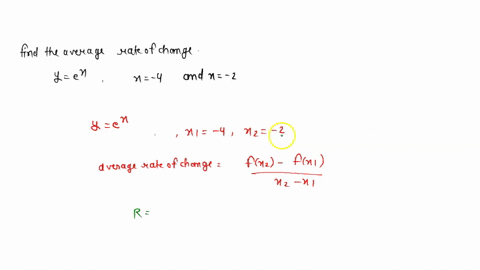 find the average rate of change.
y = eˣ , x = -4 and x = -2
y = eˣ , x1 = -4 , x2 = -2
average rate of change = f(x2) - f(x1) / x2 - x1
R =